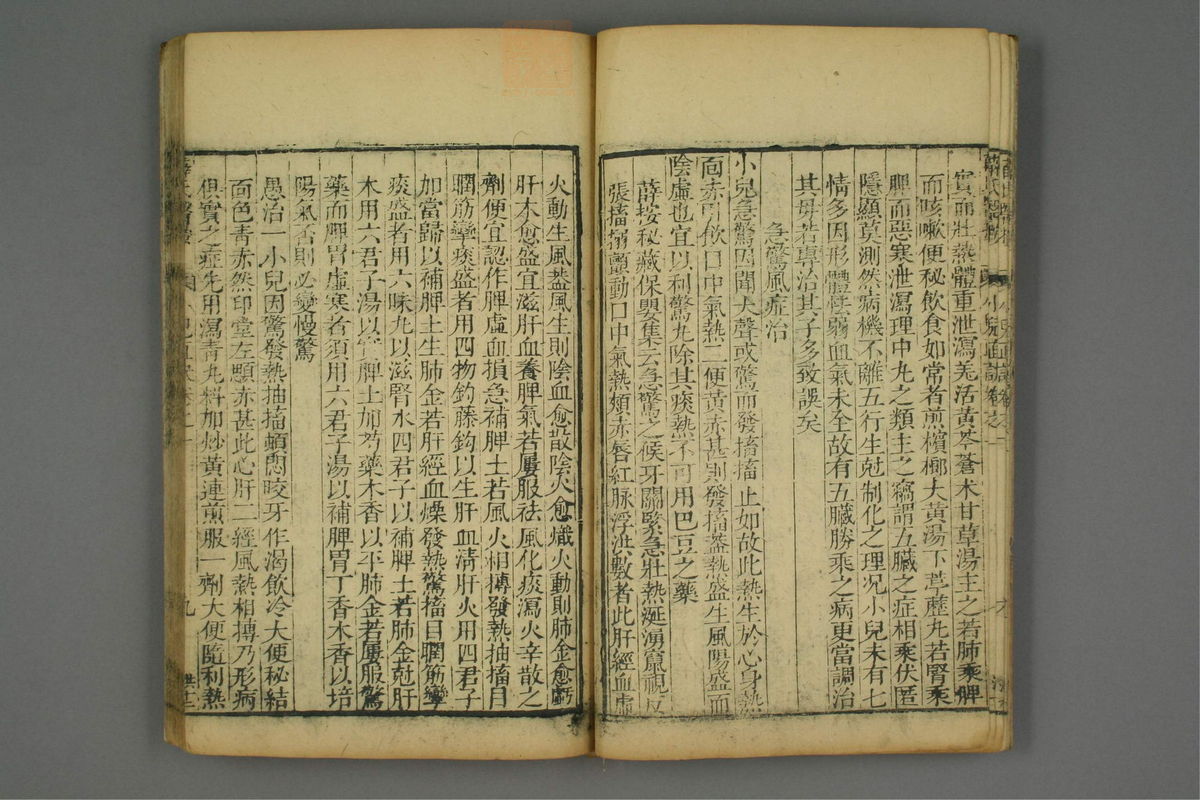 實而壯熱體重泄瀉羌活黃芩蒼术甘草湯主之若肺乘脾
而咳嗽便秘飲食如常者煎檳榔大黃湯下葶藶丸若腎乘
脾而惡寒泄瀉理中丸之類主之竊謂五臟之症相乘伏匿
隱顯莫測然病機不離五行生尅制化之理况小兒未有七
情多因形體怯弱血氣未全故有五臟勝乘之病更當調治
其母若專治其子多致誤矣
急驚風症治
小兒急驚因聞大聲或驚而發搐搐止如故此熱生於心身熱
面赤引飲口中氣熱二便黃赤甚則發搐葢熱盛生風陽盛而
陰虛也宜以利驚丸除其痰熱不可用巴豆之藥
薛按秘藏保嬰集云急驚之候牙關緊急壯熱涎湧竄視反
張搐搦顫動口中氣熱頰赤唇紅脉浮洪數者此肝經血虛
火動生風葢風生則陰血愈散陰火愈熾火動則肺金愈虧
肝木愈盛宜滋肝血養脾氣若屢服祛風化痰瀉火辛散之
劑便宜認作脾虛血損急補脾土若風火相摶發熱抽搐目
瞤筋攣痰盛者用四物鈎藤鈎以生肝血清肝火用四君子
加當歸以補脾土生肺金若肝經血燥發熱驚搐目瞤筋攣
痰盛者用六味丸以滋腎水四君子以補脾土若肺金尅肝
木用六君子湯以實脾土加芍藥木香以平肺金若屢服驚
藥而脾胃虛寒者須用六君子湯以補脾胃丁香木香以培
陽氣否則必變慢驚
愚治一小兒因驚發熱抽搐頓悶咬牙作渴飲冷大便秘結
面色青赤然印堂左顋赤甚此心肝二經風熱相摶乃形病
俱實之症先用瀉青丸料加炒黃連煎服一劑大便隨利熱
九